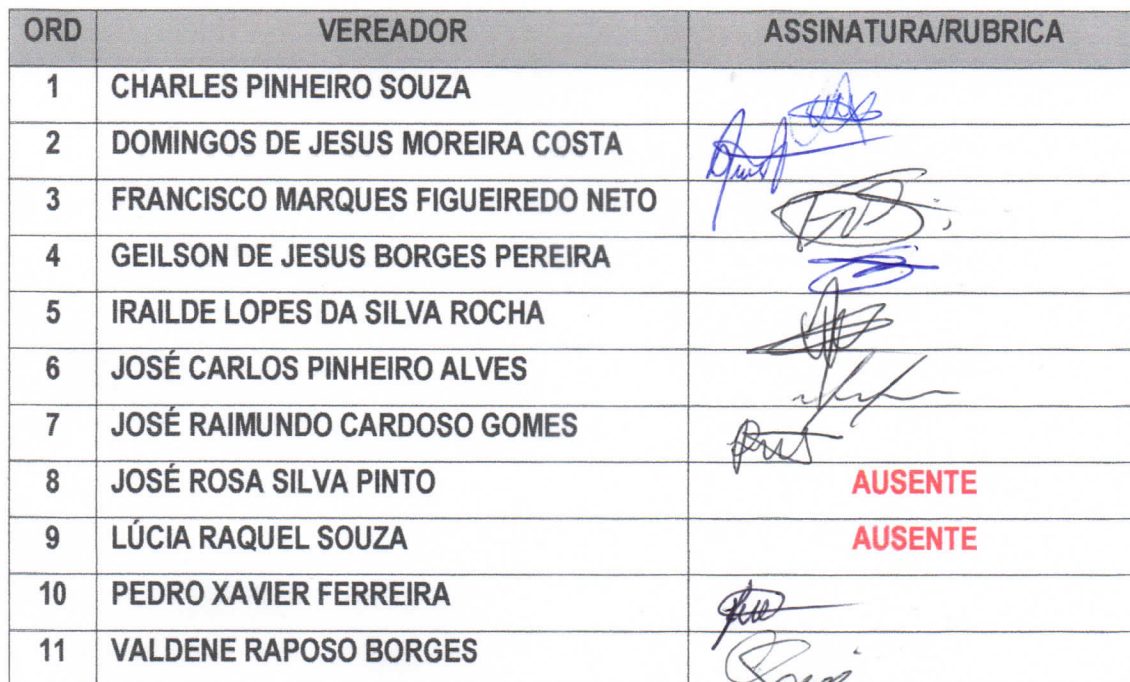 ORD VEREADOR ASSINATURA/RUBRICA
1 CHARLES PINHEIRO SOUZA
2 DOMINGOS DE JESUS MOREIRA COSTA
3 FRANCISCO MARQUES FIGUEIREDO NETO
4 GEILSON DE JESUS BORGES PEREIRA
5 IRAILDE LOPES DA SILVA ROCHA
6 JOSÉ CARLOS PINHEIRO ALVES
7 JOSÉ RAIMUNDO CARDOSO GOMES
8 JOSÉ ROSA SILVA PINTO AUSENTE
9 LÚCIA RAQUEL SOUZA AUSENTE
10 PEDRO XAVIER FERREIRA
11 VALDENE RAPOSO BORGES